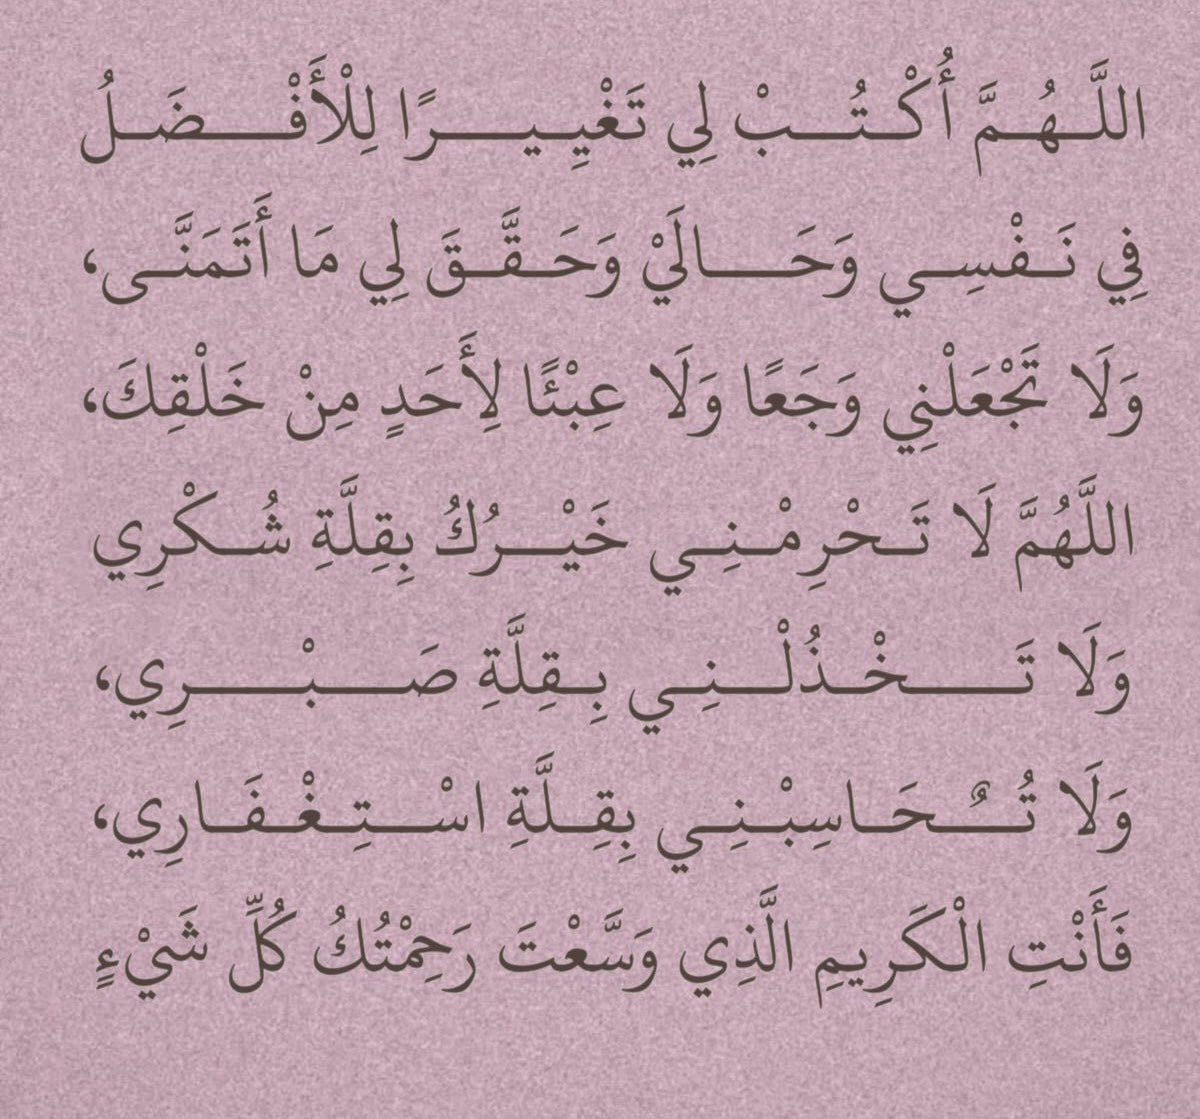 اللَّـهُـمَّ أُكْـتُـبْ لِي تَغْيِـيـرًا لِلْأَفْـضَـلُ
فِي نَـفْـسِـي وَحَـالَيْ وَحَـقَّـقَ لِي مَا أَتَمَنَّـى،
وَلَا تَجْعَلْنِي وَجَعًا وَلَا عِبْئًا لِأَحَدٍ مِنْ خَلْقِكَ،
اللَّهُمَّ لَا تَـحْرِمْـنِـي خَيْـرُكُ بِقِلَّةِ شُـكْرِي
وَلَا تَـخْـذُلْـنِـي بِـقِلَّةِ صَـبْـرِي،
وَلَا تُـٌـحَـاسِبْـنِـي بِقِـلَّةِ اسْـتِـغْـفَـارِي،
فَأَنْتِ الْكَرِيمِ الَّذِي وَسَّعْتَ رَحِمْتُكُ كُلِّ شَيْءٍ